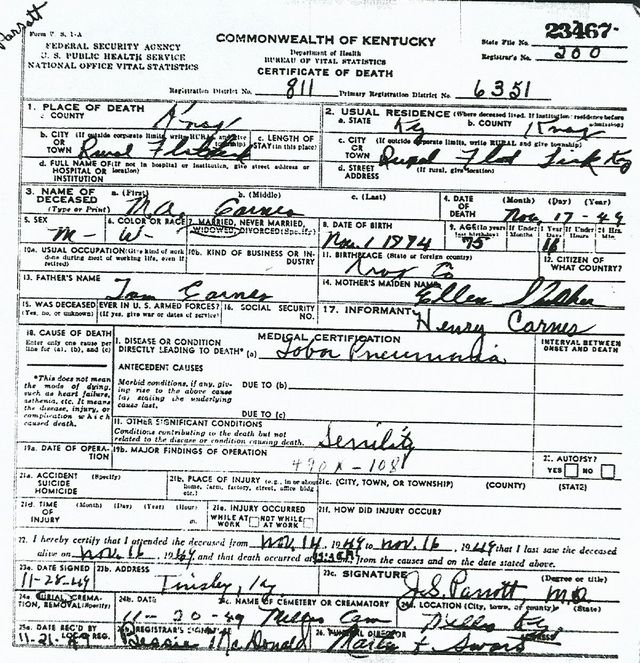 Parrott
Form V. S. 1-A
FEDERAL SECURITY AGENCY
U. S. PUBLIC HEALTH SERVICE
NATIONAL OFFICE VITAL STATISTICS
COMMONWEALTH OF KENTUCKY
Department of Health
BUREAU OF VITAL STATISTICS
CERTIFICATE OF DEATH
State File No. 23467
Registrar's No. 200
Registration District No. 811 Primary Registration District No. 6351
1. PLACE OF DEATH
a. COUNTY Knox
2. USUAL RESIDENCE (Where deceased lived. If institution: residence before admission)
a. STATE Ky b. COUNTY Knox
b. CITY (If outside corporate limits, write RURAL and give township)
OR TOWN Rural
c. LENGTH OF STAY (in this place)
c. CITY (If outside corporate limits, write RURAL and give township)
OR TOWN Rural Flat Lick Ky
d. FULL NAME OF (If not in hospital or institution, give street address or location)
HOSPITAL OR INSTITUTION
d. STREET ADDRESS (If rural, give location)
3. NAME OF DECEASED (Type or Print)
a. (First) b. (Middle) c. (Last)
Carnes
4. DATE OF DEATH (Month) (Day) (Year)
Nov 17-49
5. SEX M-
6. COLOR OR RACE W-
7. MARRIED, NEVER MARRIED, WIDOWED, DIVORCED (Specify)
8. DATE OF BIRTH Nov. 1 1874
9. AGE (In years last birthday) 75 If Under 1 Year Months Days 16 If Under 24 Hrs. Hours Min.
10a. USUAL OCCUPATION (Give kind of work done during most of working life, even if retired)
10b. KIND OF BUSINESS OR INDUSTRY
11. BIRTHPLACE (State or foreign country)
Knox Co
12. CITIZEN OF WHAT COUNTRY?
13. FATHER'S NAME
Tom Carnes
14. MOTHER'S MAIDEN NAME
Ellen
15. WAS DECEASED EVER IN U. S. ARMED FORCES?
(Yes, no, or unknown) (If yes, give war or dates of service)
16. SOCIAL SECURITY NO.
17. INFORMANT
Henry Carnes
18. CAUSE OF DEATH
Enter only one cause per line for (a), (b), and (c)
MEDICAL CERTIFICATION
INTERVAL BETWEEN ONSET AND DEATH
I. DISEASE OR CONDITION
DIRECTLY LEADING TO DEATH* (a) Lobar Pneumonia
*This does not mean the mode of dying, such as heart failure, asthenia, etc. It means the disease, injury, or complication which caused death.
ANTECEDENT CAUSES
Morbid conditions, if any, giving rise to the above cause (a) stating the underlying cause last.
DUE TO (b)
DUE TO (c)
II. OTHER SIGNIFICANT CONDITIONS
Conditions contributing to the death but not related to the disease or condition causing death.
Senility
19a. DATE OF OPERATION
19b. MAJOR FINDINGS OF OPERATION
490X-108
20. AUTOPSY?
YES NO
21a. ACCIDENT SUICIDE HOMICIDE (Specify)
21b. PLACE OF INJURY (e.g., in or about home, farm, factory, street, office bldg., etc.)
21c. (CITY, TOWN, OR TOWNSHIP) (COUNTY) (STATE)
21d. TIME OF INJURY (Month) (Day) (Year) (Hour) m.
21e. INJURY OCCURRED
WHILE AT WORK NOT WHILE AT WORK
21f. HOW DID INJURY OCCUR?
22. I hereby certify that I attended the deceased from Nov. 14, 1949 to Nov. 16, 1949 that I last saw the deceased
alive on Nov. 16, 1949 and that death occurred at from the causes and on the date stated above.
23a. DATE SIGNED 11-28-49
23b. ADDRESS Tinsley, Ky
23c. SIGNATURE (Degree or title)
J.S. Parrott, M.D.
24a. BURIAL, CREMATION, REMOVAL (Specify)
24b. DATE 11-20-49
24c. NAME OF CEMETERY OR CREMATORY
Cem
24d. LOCATION (City, town, or county) (State)
Ky.
25a. DATE REC'D BY LOCAL REG.
25b. REGISTRAR'S SIGNATURE
Bessie McDonald
26. FUNERAL DIRECTOR ADDRESS